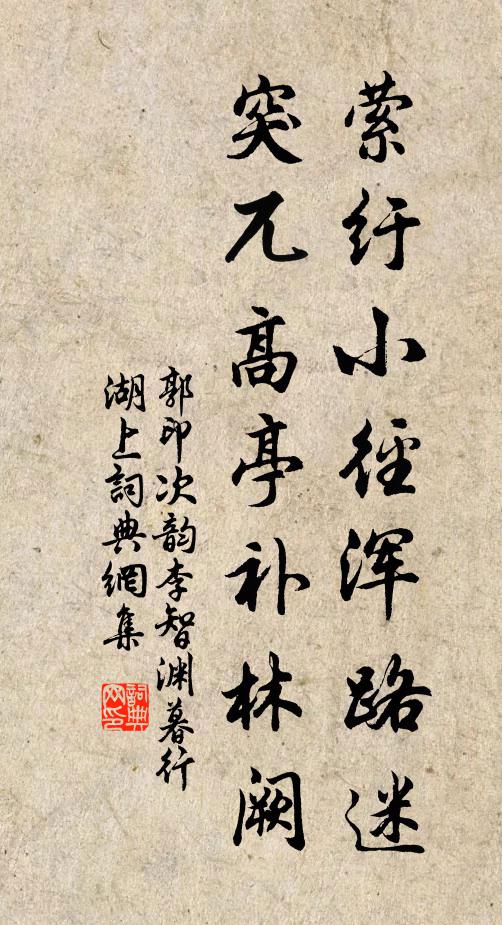 萦纡小径浑路迷
突兀高亭补林阙
郭印次韵李智渊暮行
湖上詞典網集
詞典
网印